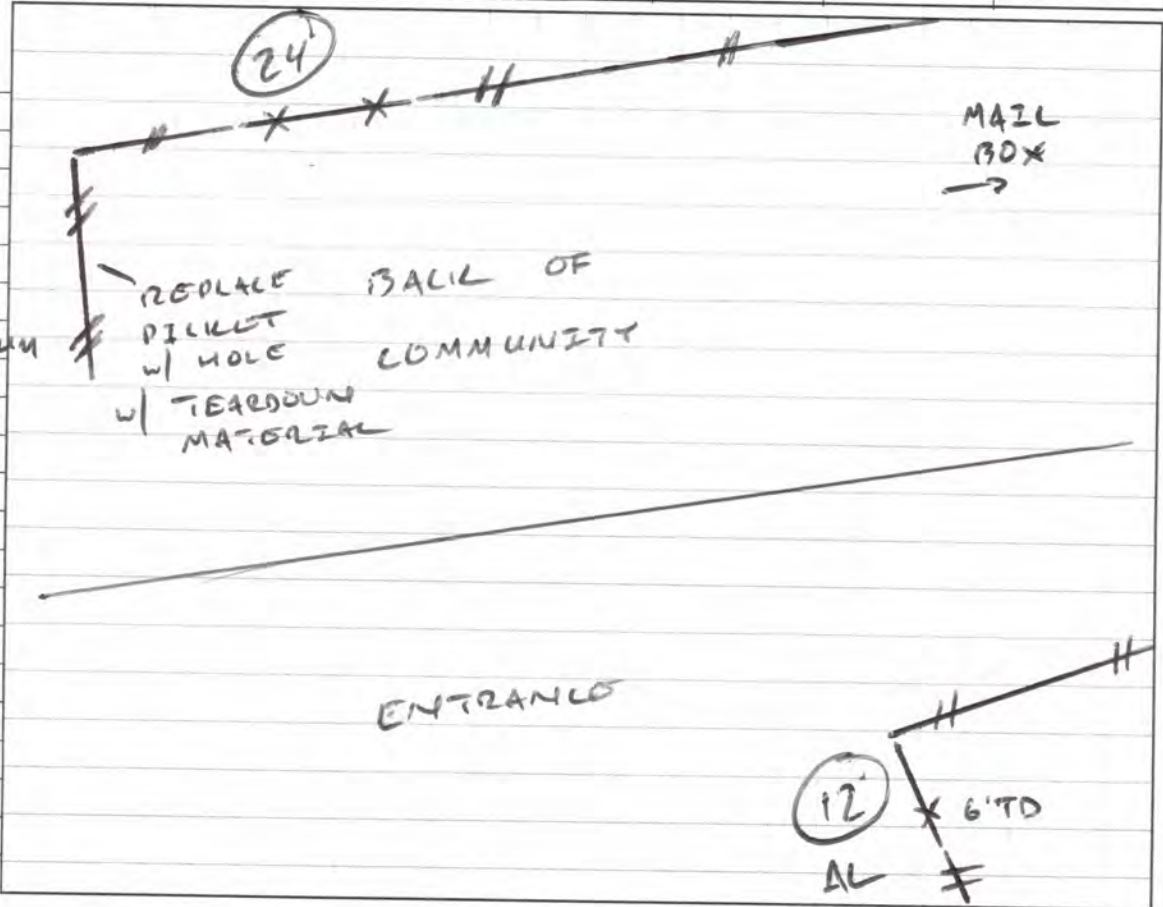 24'
MAIL
BOX
REPLACE
PICKET
w/ HOLE
w/ TEARDOWN
MATERIAL
BACK OF
COMMUNITY
ENTRANCE
12'
6'TD
AL